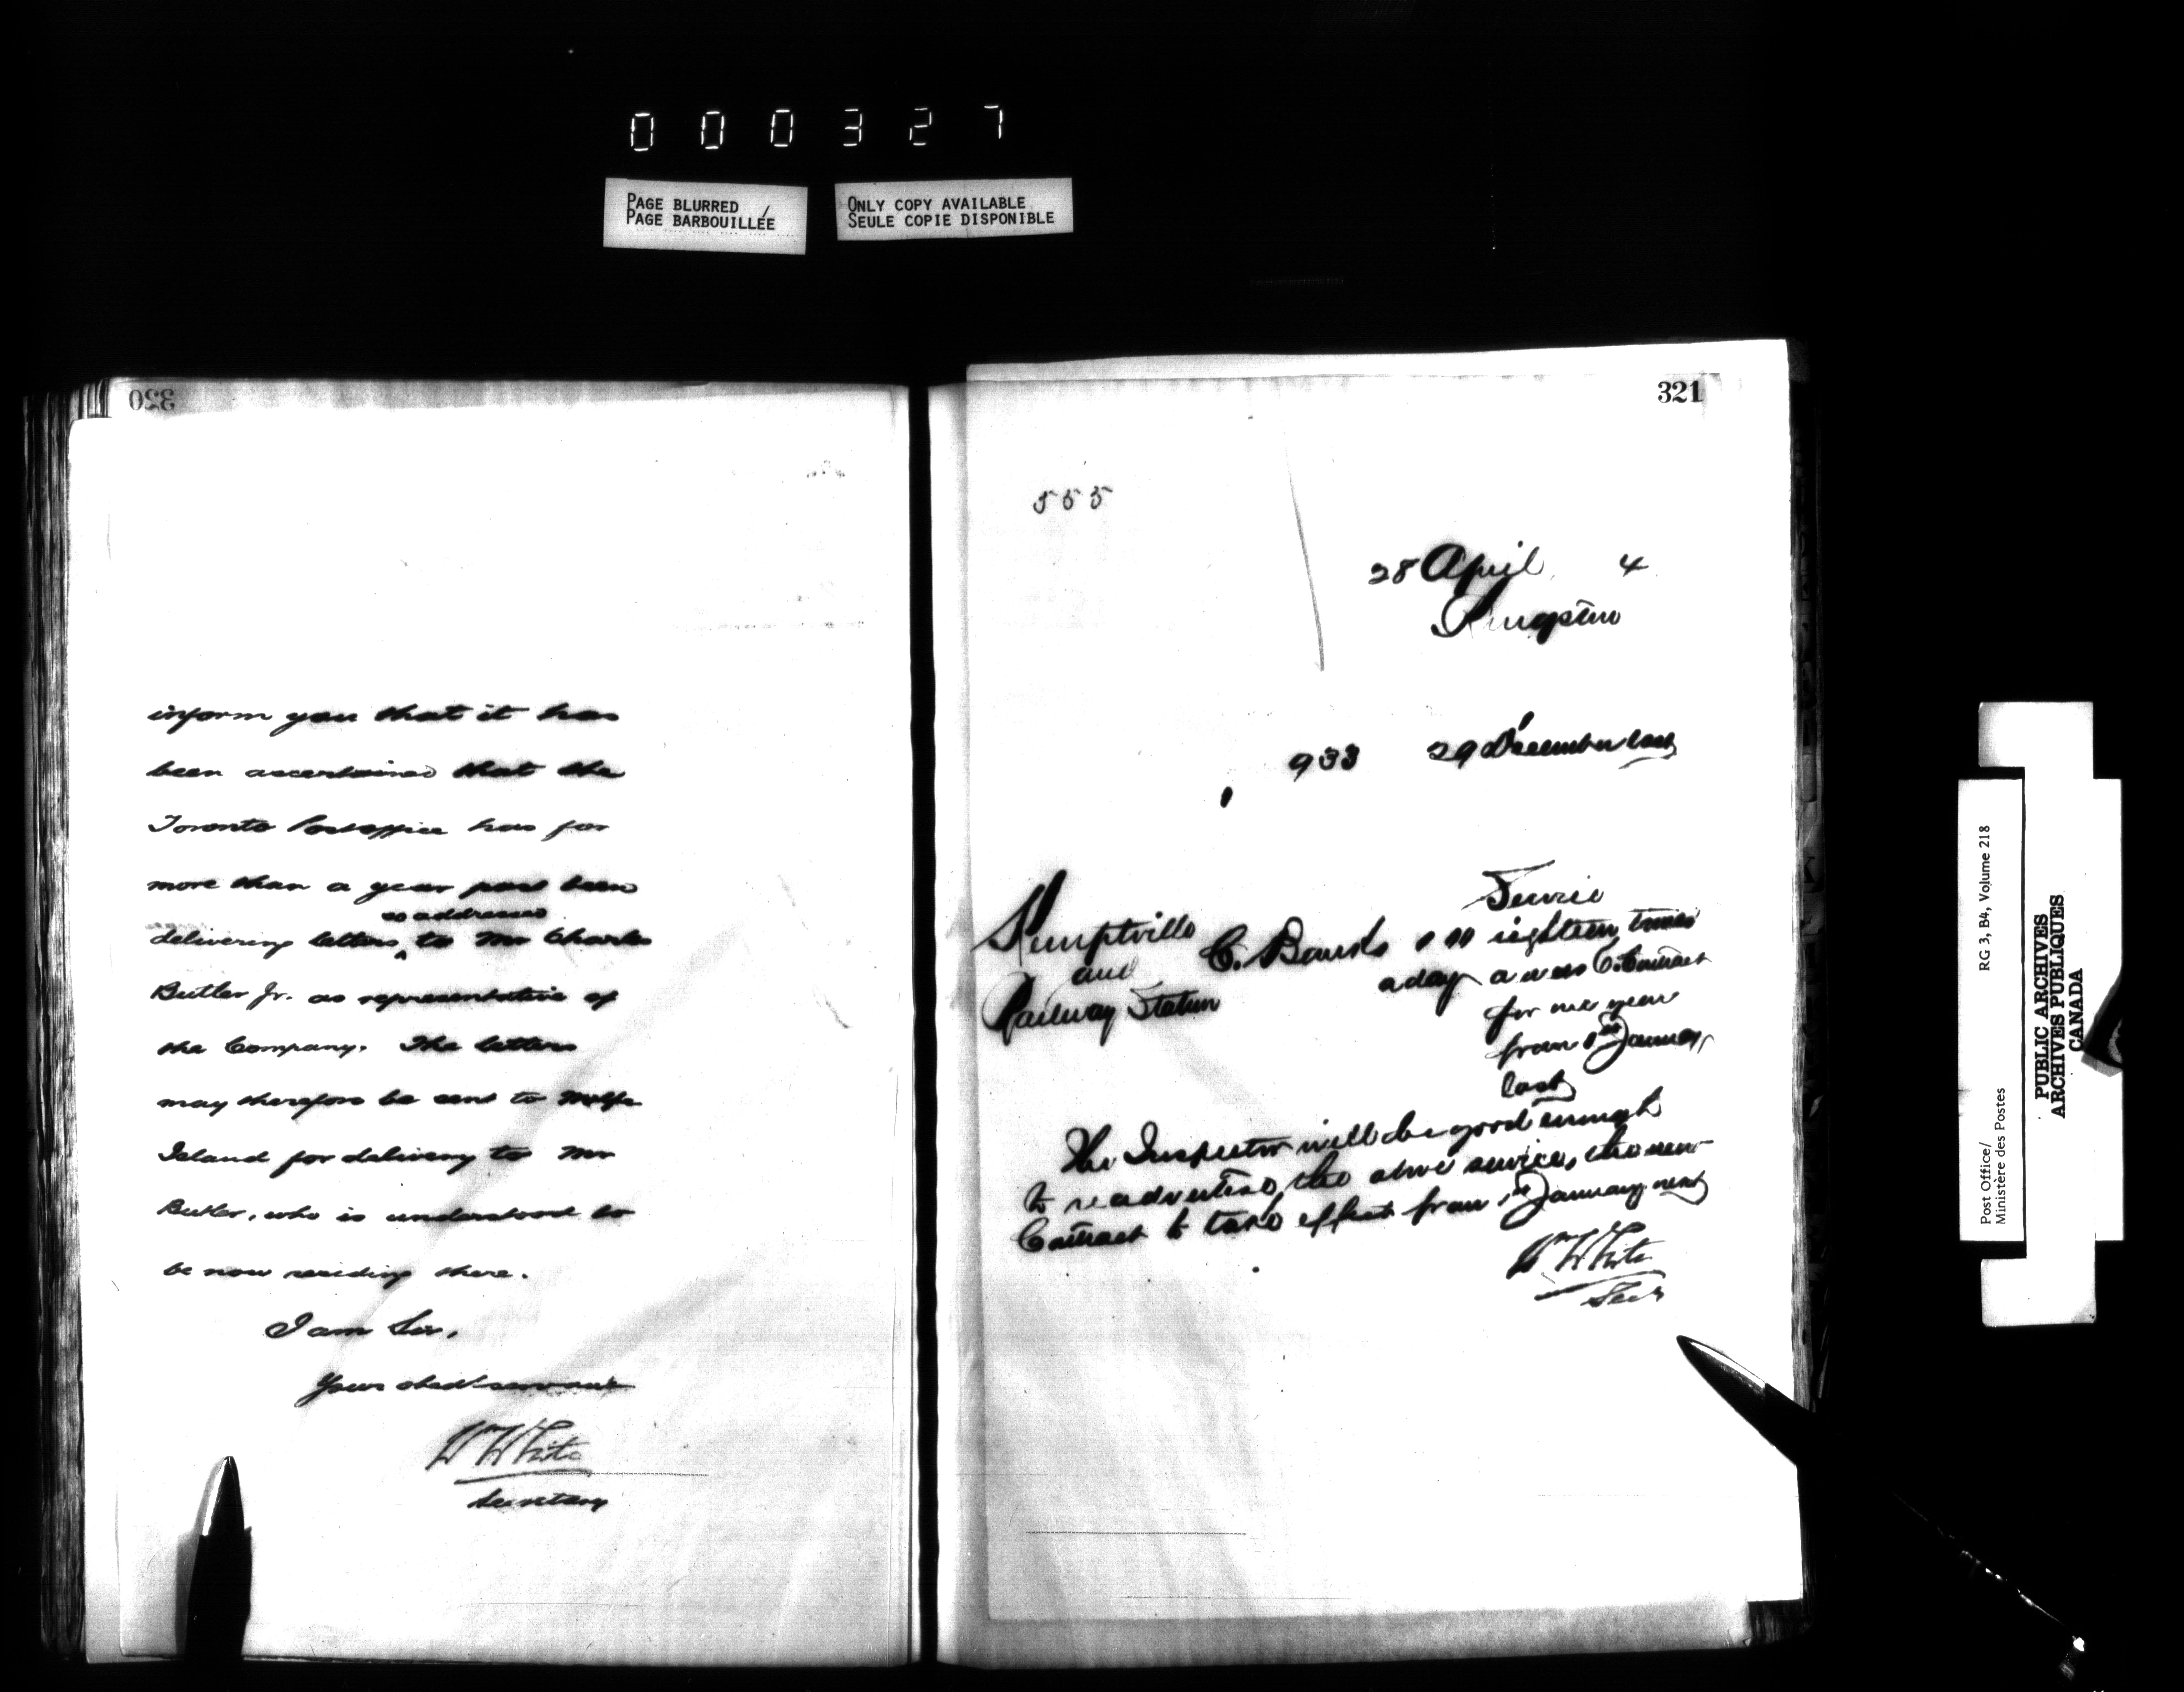 000327
PAGE BLURRED
PAGE BARBOUILLÉE
ONLY COPY AVAILABLE
SEULE COPIE DISPONIBLE
320
inform you that it has
been ascertained that the
Toronto Post office has for
more than a year past been
so addressed
delivering letters ^ to Mr Charles
Butler Jr. as representative of
the Company. The letters
may therefore be sent to Wolfe
Island for delivery to Mr
Butler, who is understood to
be now residing there.
I am Sir,
Your obedt servant
Wm White
Secretary
321
555
28 April 4
Kingston
933 29 December last
Service
Kemptville
and
Railway Station
C. eighteen times
a day
Contract
for one year
from 1st January
last
The Inspector will be good enough
to readvertise the above service, the new
Contract to take effect from 1st January next
Wm White
Secy
Post Office/
Ministère des Postes
RG 3, B4, Volume 218
PUBLIC ARCHIVES
ARCHIVES PUBLIQUES
CANADA